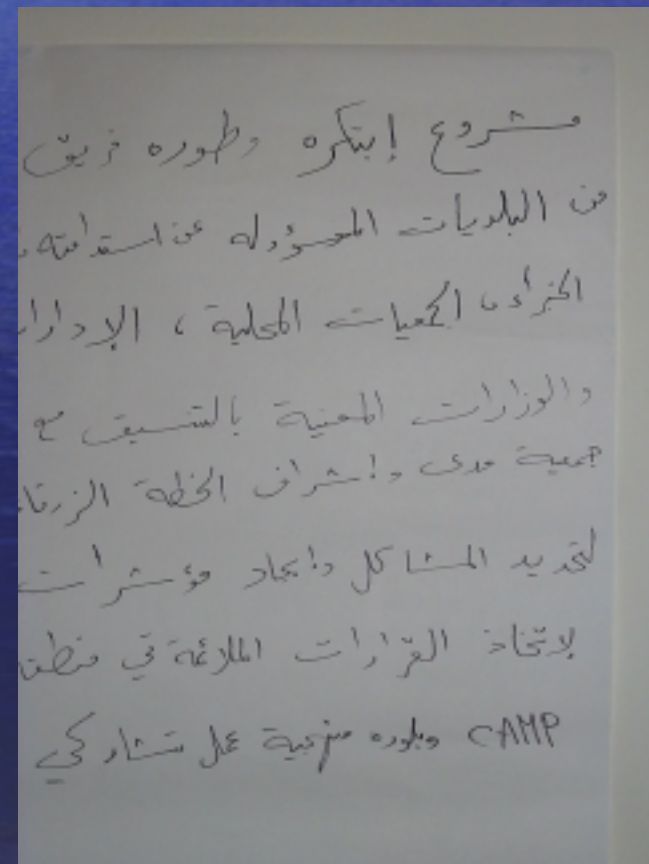 مشروع إبتكره وطوره فريق
من البلديات المسؤوله عن استدامته
الخبراء، الجمعيات المحلية، الإدارا
والوزارات المعنية بالتنسيق مع
جمعية مدى وإشراف الخطة الزرقا
لتحديد المشاكل وايجاد مؤشرات
لاتخاذ القرارات الملائمة في منطقة
CAMP وبلوره منهجية عمل تشاركي